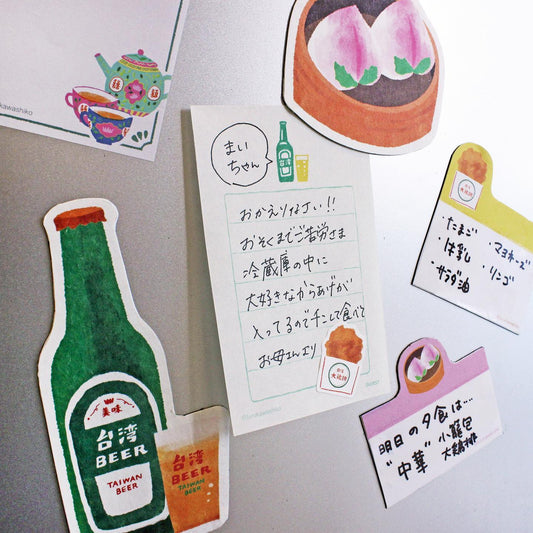 kawashiko
まい
ちゃん
台湾
おかえりなさい!!
おそくまでご苦労さま
冷蔵庫の中に
大好きなからあげが
入ってるのでチンして食べて
お母さんより
大鶏排
・たまご
・牛乳
・サラダ油
・マヨネーズ
・リンゴ
明日の夕食は…
"中華"
小籠包
大鶏排
美味
台湾
BEER
TAIWAN
BEER
台湾
BEER
TAIWAN
BEER